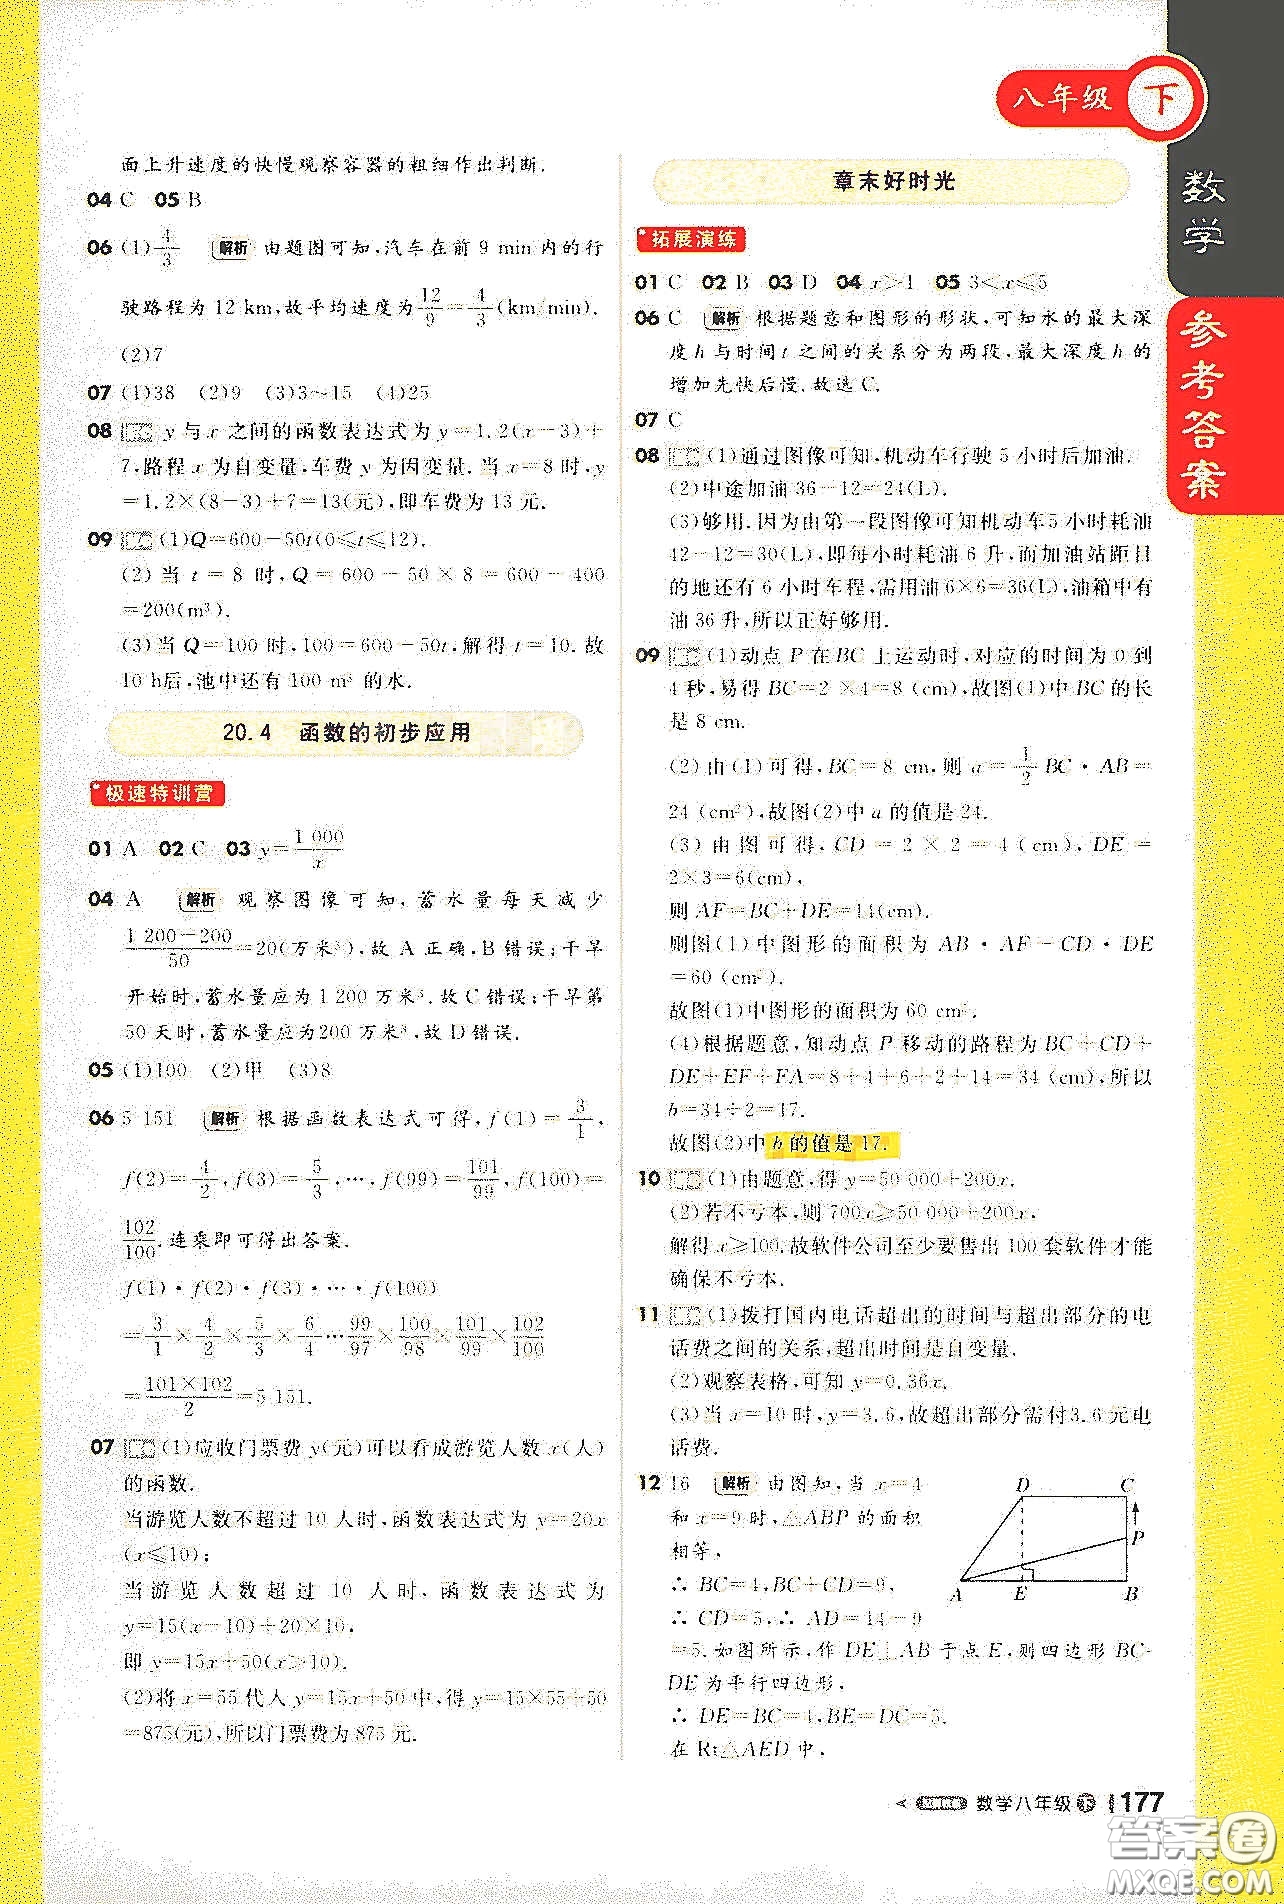 八年级 下
数学
参考答案
面上升速度的快慢观察容器的粗细作出判断.
04 C 05 B
06 (1)4/3 解析 由题图可知,汽车在前 9 min内的行
驶路程为 12 km,故平均速度为12/9=4/3(km/min).
(2)7
07 (1)38 (2)9 (3)3~15 (4)25
08 y 与 x 之间的函数表达式为 y=1.2(x-3)+
7,路程 x 为自变量,车费 y 为因变量.当 x=8 时,y
=1.2×(8-3)+7=13(元),即车费为 13 元.
09 (1)Q=600-50t(0≤t≤12).
(2)当 t=8 时,Q=600-50×8=600-400
=200(m³).
(3)当 Q=100 时,100=600-50t,解得 t=10.故
10 h后,池中还有 100 m³ 的水.
20.4 函数的初步应用
极速特训营
01 A 02 C 03 y=1 000/x
04 A 解析 观察图像可知,蓄水量每天减少
(1 200-200)/50=20(万米³),故 A 正确,B 错误;干旱
开始时,蓄水量应为1 200 万米³.故 C 错误;干旱第
50 天时,蓄水量应为200 万米³,故 D 错误.
05 (1)100 (2)甲 (3)8
06 5 151 解析 根据函数表达式可得,f(1)=3/1,
f(2)=4/2,f(3)=5/3,…,f(99)=101/99,f(100)=
102/100.连乘即可得出答案.
f(1)·f(2)·f(3)·…·f(100)
=3/1×4/2×5/3×6/4×…99/97×100/98×101/99×102/100
=(101×102)/2=5 151.
07 (1)应收门票费 y(元)可以看成游览人数 x(人)
的函数.
当游览人数不超过 10 人时,函数表达式为 y=20x
(x≤10);
当游览人数超过 10 人时,函数表达式为
y=15(x-10)+20×10,
即 y=15x+50(x>10).
(2)将 x=55 代人 y=15x+50 中,得 y=15×55+50
=875(元),所以门票费为 875 元.
章末好时光
拓展演练
01 C 02 B 03 D 04 x>1 05 3<x≤5
06 C 解析 根据题意和图形的形状,可知水的最大深
度 h 与时间 t 之间的关系分为两段,最大深度 h 的
增加先快后慢.故选 C.
07 C
08 (1)通过图像可知,机动车行驶 5 小时后加油.
(2)中途加油 36-12=24(L).
(3)够用.因为由第一段图像可知机动车5 小时耗油
42-12=30(L),即每小时耗油 6 升,而加油站距目
的地还有 6 小时车程,需用油 6×6=36(L),油箱中有
油 36 升,所以正好够用.
09 (1)动点 P 在 BC 上运动时,对应的时间为 0 到
4 秒,易得 BC=2×4=8(cm),故图(1)中BC的长
是 8 cm.
(2)由(1)可得,BC=8 cm,则 a=1/2BC·AB=
24(cm²),故图(2)中 a 的值是 24.
(3)由图可得,CD=2×2=4(cm),DE=
2×3=6(cm),
则 AF=BC+DE=14(cm).
则图(1)中图形的面积为 AB·AF-CD·DE
=60(cm²).
故图(1)中图形的面积为 60 cm².
(4)根据题意,知动点 P 移动的路程为 BC+CD+
DE+EF+FA=8+4+6+2+14=34(cm),所以
b=34÷2=17.
故图(2)中 b 的值是 17.
10 (1)由题意,得 y=50 000+200x.
(2)若不亏本,则 700x≥50 000+200x,
解得 x≥100.故软件公司至少要售出 100 套软件才能
确保不亏本.
11 (1)拨打国内电话超出的时间与超出部分的电
话费之间的关系,超出时间是自变量.
(2)观察表格,可知 y=0.36x.
(3)当 x=10 时,y=3.6,故超出部分需付3.6 元电
话费.
12 16 解析 由图知,当 x=4
和 x=9 时,△ABP 的面积
相等,
∴ BC=4,BC+CD=9,
∴ CD=5,∴ AD=14-9
=5.如图所示,作 DE⊥AB 于点 E,则四边形 BC-
DE 为平行四边形,
∴ DE=BC=4,BE=DC=5.
在 Rt△AED 中,
D C
P
A E B
数学八年级 下 177
答案圈
MXQE.COM